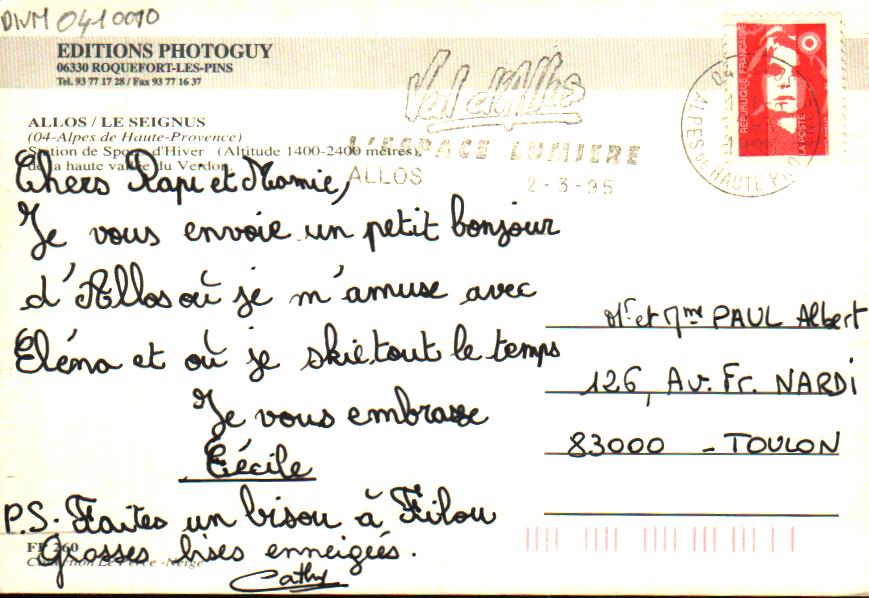 DWM 0410010
EDITIONS PHOTOGUY
06330 ROQUEFORT-LES-PINS
Tel. 93 77 17 28 / Fax 93 77 16 37
ALLOS / LE SEIGNUS
(04-Alpes de Haute-Provence)
Station de Sports d'Hiver (Altitude 1400-2400 mètres),
de la haute vallée du Verdon
Val d'Allos
L'ESPACE LUMIERE
ALLOS 2-3-95
RÉPUBLIQUE FRANÇAISE
LA POSTE
ALPES DE HAUTE
Chers Papi et Mamie,
Je vous envoie un petit bonjour
d'Allos où je m'amuse avec
Eléna et où je skie tout le temps
Je vous embrasse
Cécile
P.S. Faites un bisou à Filou
Grosses bises enneigées.
Cathy
Mr et Mme PAUL Albert
126, Av. Fr. NARDI
83000 - TOULON